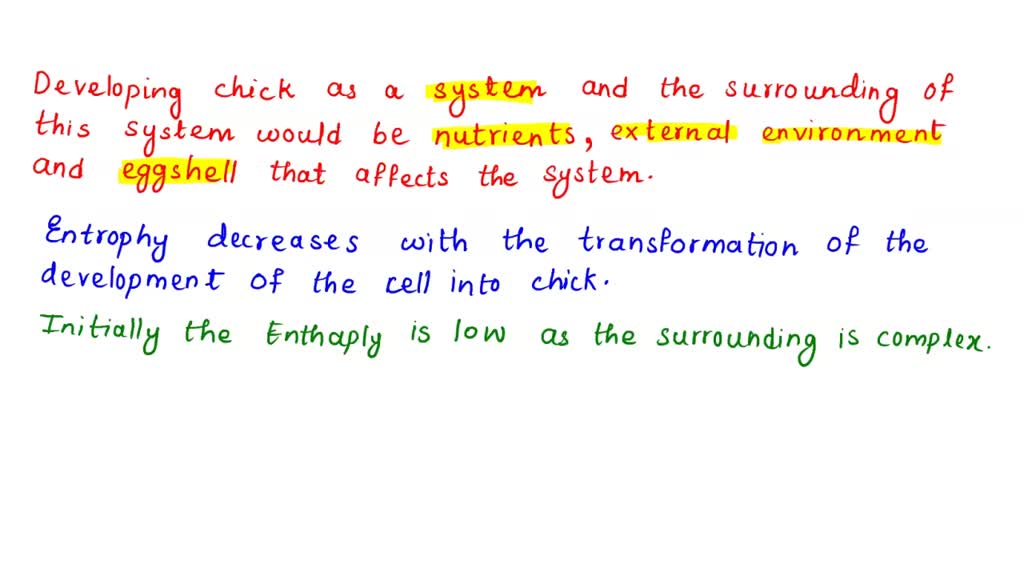 Developing chick as a system and the surrounding of
this system would be nutrients, external environment
and eggshell that affects the system.
Entrophy decreases with the transformation of the
development of the cell into chick.
Initially the Enthaply is low as the surrounding is complex.